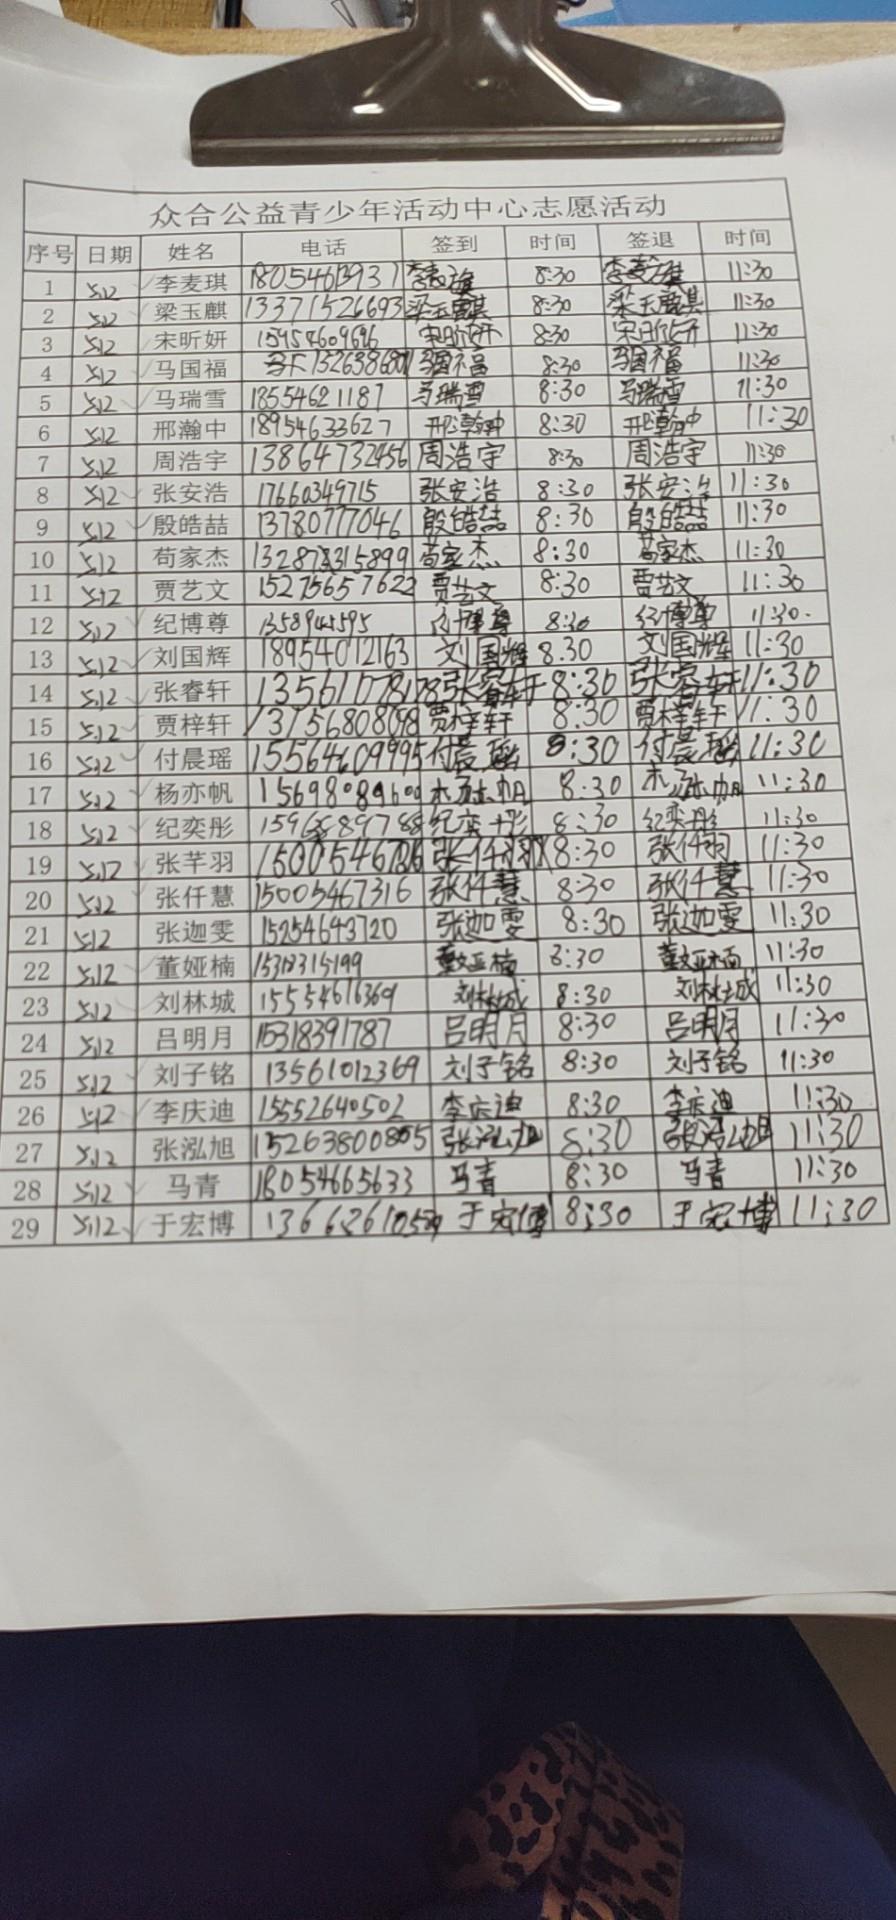 众合公益青少年活动中心志愿活动
序号 日期 姓名 电话 签到 时间 签退 时间
1 5.12 李麦琪 18054613937 李麦琪 8:30 李麦琪 11:30
2 5.12 梁玉麒 13371526693 梁玉麒 8:30 梁玉麒 11:30
3 5.12 宋昕妍 宋昕妍 8:30 宋昕妍 11:30
4 5.12 马国福 马国福 8:30 马国福 11:30
5 5.12 马瑞雪 18554621187 马瑞雪 8:30 马瑞雪 11:30
6 5.12 邢瀚中 18954633627 邢瀚中 8:30 邢瀚中 11:30
7 5.12 周浩宇 13864732456 周浩宇 8:30 周浩宇 11:30
8 5.12 张安浩 17660349715 张安浩 8:30 张安浩 11:30
9 5.12 殷皓喆 13780777046 殷皓喆 8:30 殷皓喆 11:30
10 5.12 苟家杰 苟家杰 8:30 苟家杰 11:30
11 5.12 贾艺文 15275657622 贾艺文 8:30 贾艺文 11:30
12 5.12 纪博尊 8:30 纪博尊 11:30
13 5.12 刘国辉 18954012163 刘国辉 8:30 刘国辉 11:30
14 5.12 张睿轩 张睿轩 8:30 张睿轩 11:30
15 5.12 贾梓轩 贾梓轩 8:30 贾梓轩 11:30
16 5.12 付晨瑶 15564609995 付晨瑶 8:30 付晨瑶 11:30
17 5.12 杨亦帆 8:30 11:30
18 5.12 纪奕彤 纪奕彤 8:30 纪奕彤 11:30
19 5.12 张芊羽 8:30 张仟羽 11:30
20 5.12 张仟慧 15005467316 张仟慧 8:30 张仟慧 11:30
21 5.12 张迦雯 15254643720 张迦雯 8:30 张迦雯 11:30
22 5.12 董娅楠 8:30 11:30
23 5.12 刘林城 15554616369 刘林城 8:30 刘林城 11:30
24 5.12 吕明月 15318391787 吕明月 8:30 吕明月 11:30
25 5.12 刘子铭 13561012369 刘子铭 8:30 刘子铭 11:30
26 5.12 李庆迪 15552640502 李庆迪 8:30 李庆迪 11:30
27 5.12 张泓旭 张泓旭 8:30 张泓旭 11:30
28 5.12 马青 18054665633 马青 8:30 马青 11:30
29 5.12 于宏博 于宏博 8:30 于宏博 11:30